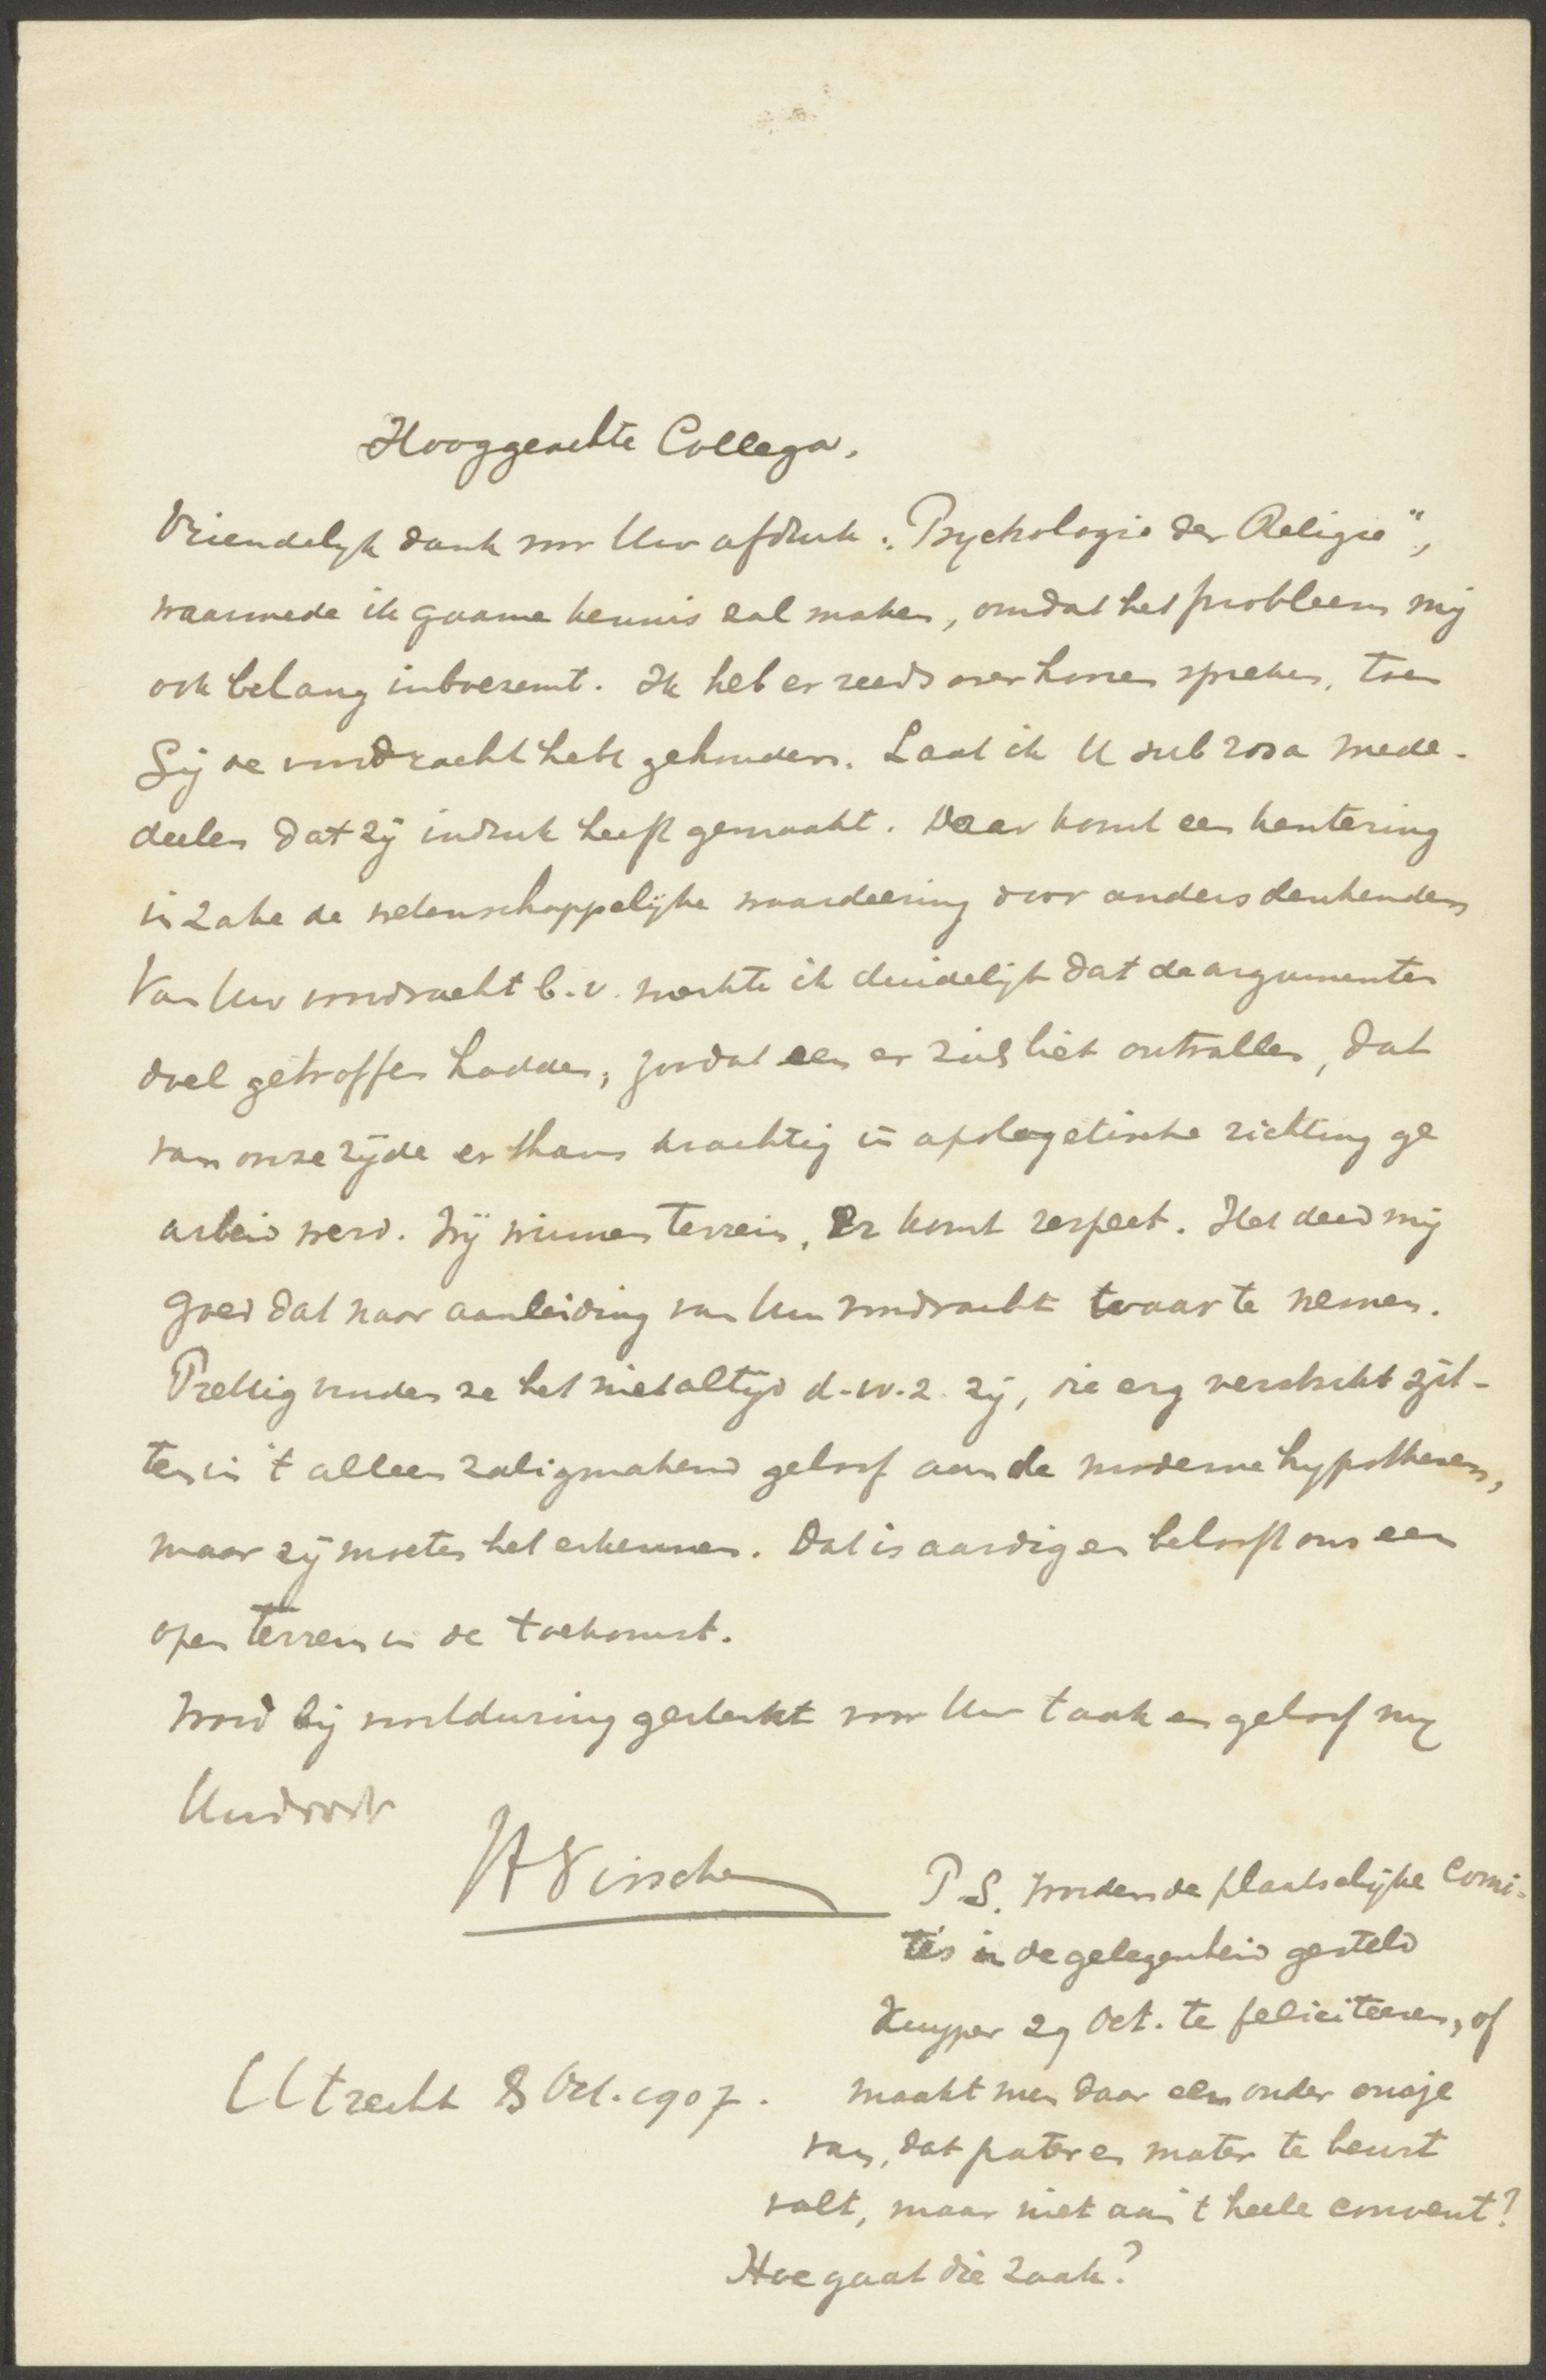 Hooggeachte Collega,
Vriendelijk dank voor Uw afdruk: "Psychologie der Religie",
waarmede ik gaarne kennis zal maken, omdat het probleem mij
ook belang inboezemt. Ik heb er reeds over hooren spreken, toen
Gij de voordracht hebt gehouden. Laat ik U sub rosa mede-
deelen dat zij indruk heeft gemaakt. Daar komt een kentering
in zake de wetenschappelijke waardeering door andersdenkenden
Van Uw voordracht b.v. merkte ik duidelijk dat de argumenten
doel getroffen hadden, zoodat een er zich liet ontvallen, dat
van onze zijde er thans krachtig in apologetische richting ge
arbeid werd. Wij winnen terrein, Er komt respect. Het deed mij
goed dat naar aanleiding van Uw voordracht waar te nemen.
Prettig vinden ze het niet altijd d.w.z. zij, die erg verstrikt zit-
ten in 't alleen zaligmakend geloof aan de moderne hypothesen,
maar zij moeten het erkennen. Dat is aardig en belooft ons een
open terrein in de toekomst.
Word bij voortduring gesterkt voor Uw taak en geloof mij
Uwdwdr
HVisscher
P.S. Worden de plaatselijke Comi-
té's in de gelegenheid gesteld
Kuyper 29 Oct. te feliciteeren, of
maakt men daar een onder onsje
van, dat pater en mater te beurt
valt, maar niet aan 't heele convent?
Hoe gaat die zaak?
Utrecht 8 Oct. 1907.